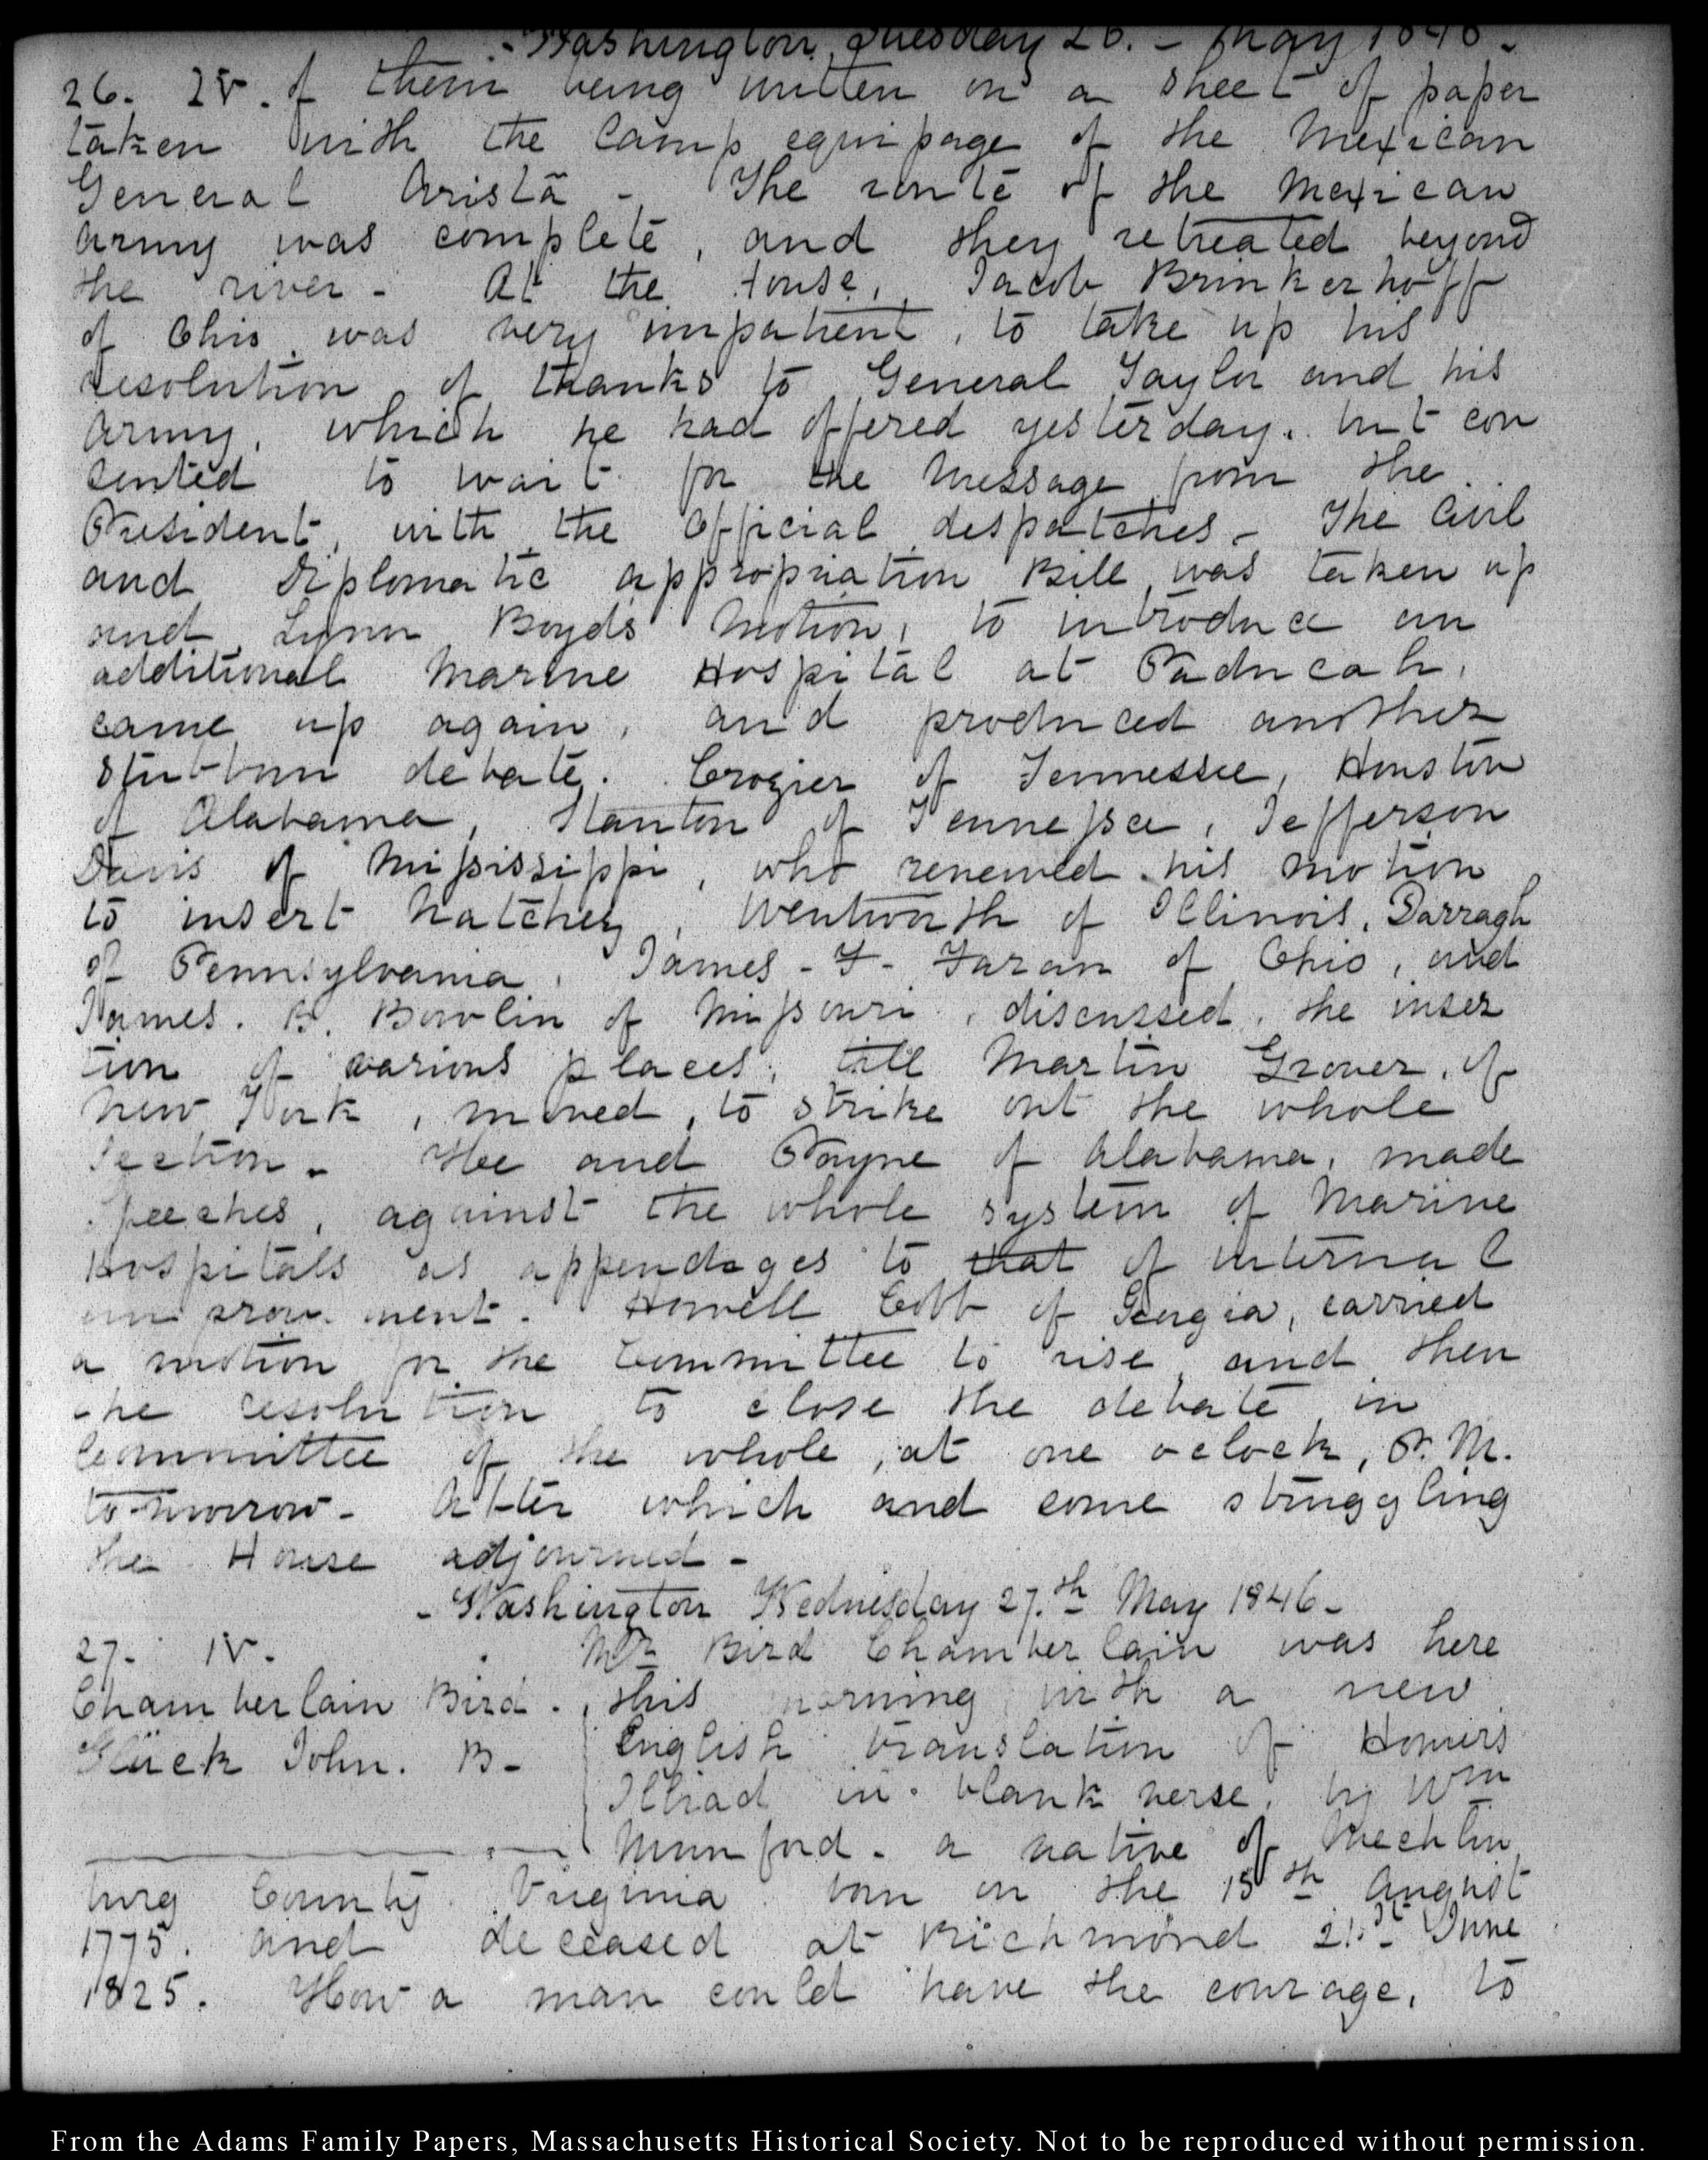 - Washington, Tuesday 26. - May 1846 -
26. IV. of them being written on a sheet of paper
taken with the Camp equipage of the Mexican
General Arista - The route of the Mexican
army was complete, and they retreated beyond
the river - At the House, Jacob Brinkerhoff
of Ohio was very impatient, to take up his
resolution of thanks to General Taylor and his
Army, which he had offered yesterday. but con
sented to wait for the Message from the
President, with the Official despatches - The Civil
and Diplomatic appropriation Bill was taken up
and Lynn Boyds Motion, to introduce an
additional Marine Hospital at Paducah,
came up again, and produced another
stubborn debate. Crozier of Tennessee, Houston
of Alabama, Stanton of Tennessee, Jefferson
Davis of Mississippi, who renewed his motion
to insert Natchez, Wentworth of Illinois, Darragh
of Pennsylvania, James - J - Faran of Ohio, and
James. B. Bowlin of Missouri, discussed, the inser
tion of various places, till Martin Grover, of
New York, moved, to strike out the whole
Section - Hee and Payne of Alabama, made
Speeches, against the whole system of Marine
Hospitals as appendages to that of internal
improvement. Howell Cobb of Georgia, carried
a motion for the Committee to rise, and then
the resolution to close the debate in
Committee of the whole, at one oclock, P. M.
to-morrow - After which and some struggling
the House adjourned -
- Washington Wednesday 27.th May 1846 -
27. IV. Mr Bird Chamberlain was here
Chamberlain Bird. this morning with a new
Glück John. B - English translation of Homers
Illiad in blank verse, by Wm
Munford - a native of Mechlin
burg County Virginia born on the 15th August
1775. and deceased at Richmond 21.st June
1825. How a man could have the courage, to
From the Adams Family Papers, Massachusetts Historical Society. Not to be reproduced without permission.